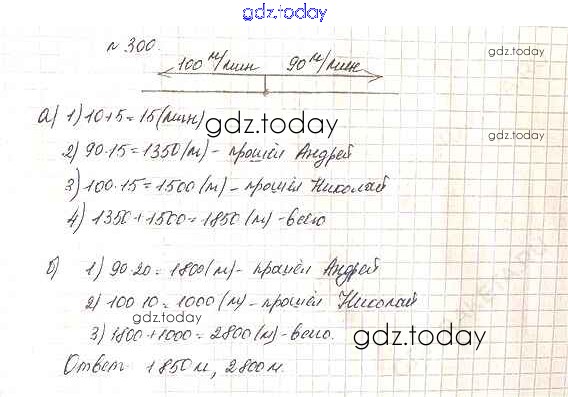 gdz.today
№ 300.
gdz.today
100 м/мин 90 м/мин
а) 1) 10+5=15(мин)
gdz.today
gdz.today
2) 90·15=1350(м)- прошёл Андрей
3) 100·15=1500(м)- прошёл Николай
4) 1350+1500=1850(м)-всего
б) 1) 90·20=1800(м)- прошёл Андрей
2) 100·10=1000(м)- прошёл Николай
gdz.today
3) 1800+1000=2800(м)-всего.
gdz.today
Ответ 1850м, 2800м.